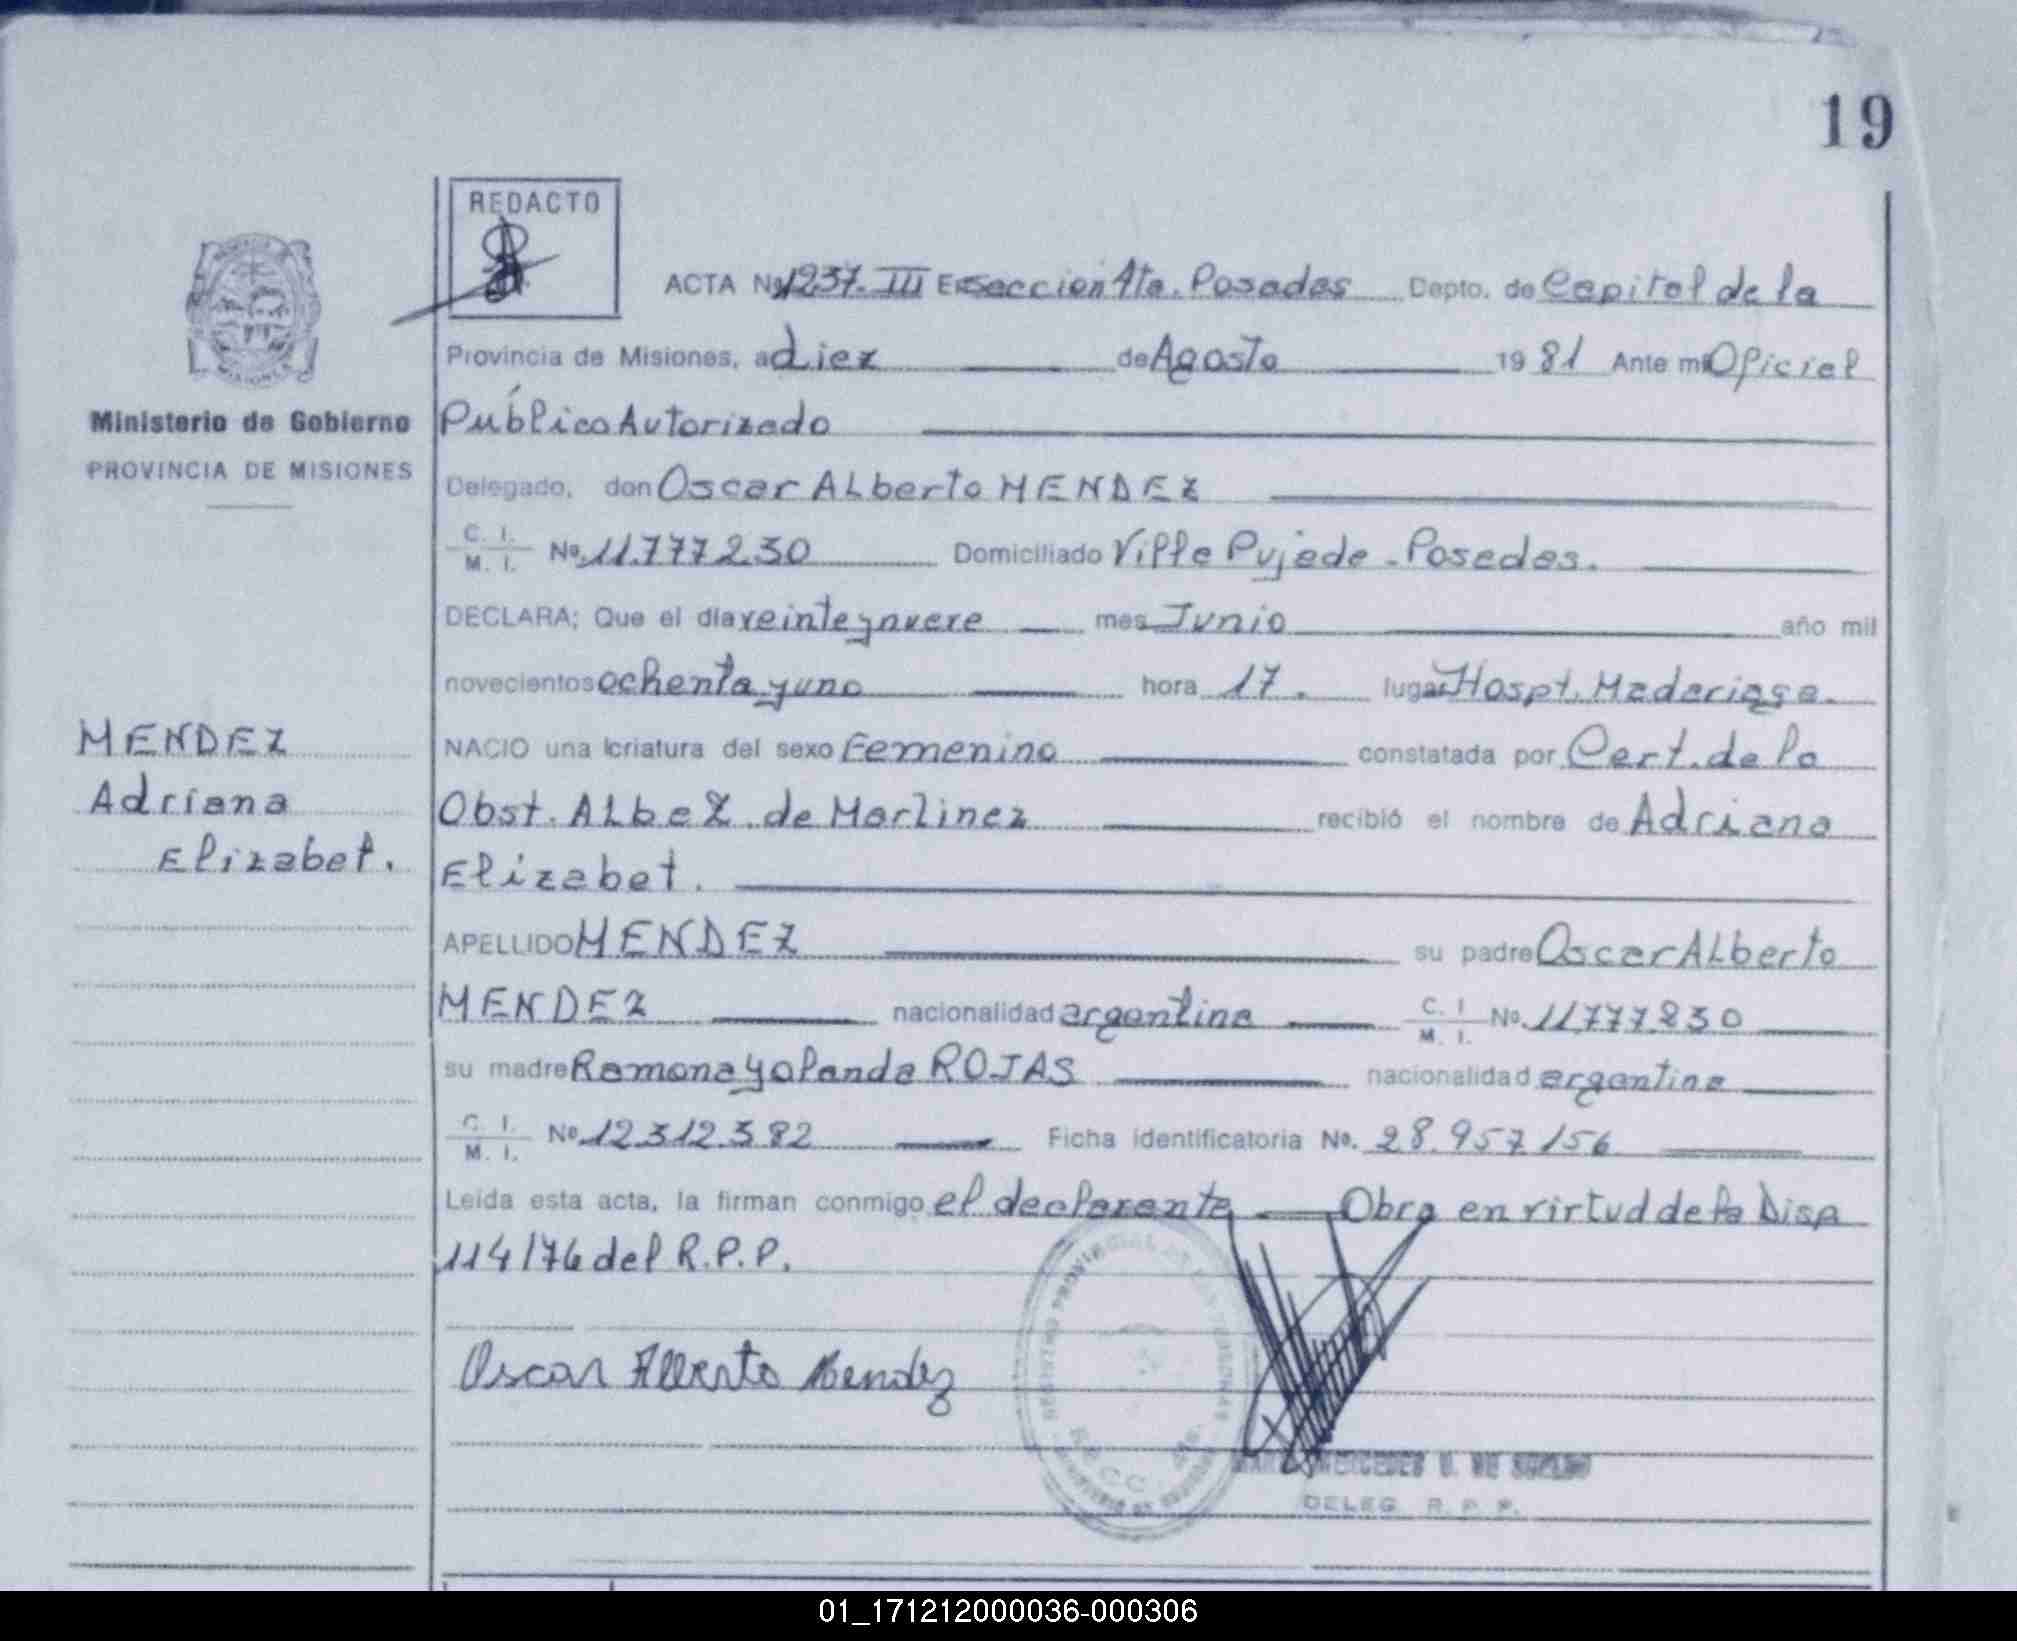 19
REDACTO
ACTA No 1237. III En Sección 4ta. Posadas Depto. de Capital de la
Provincia de Misiones, a diez de Agosto 1981 Ante mi Oficial
Público Autorizado
Delegado, don Oscar ALberto MENDEZ
C. I. M. I. No. 11.777.230 Domiciliado Villa Pujada - Posadas.
DECLARA; Que el día veinteynueve mes Junio año mil
novecientos ochenta y uno hora 17. lugar Hospt. Madariaga.
NACIO una criatura del sexo Femenino constatada por Cert. de la
Obst. ALbe Z. de Martinez recibió el nombre de Adriana
Elizabet.
APELLIDO MENDEZ su padre Oscar ALberto
MENDEZ nacionalidad argentina C. I. M. I. No. 11.777.230
su madre Ramona Yolanda ROJAS nacionalidad argentina
C. I. M. I. No 12.312.382 Ficha identificatoria No. 28.957.156
Leída esta acta, la firman conmigo el declarante Obra en virtud de la Disp
114/76 del R.P.P.
Oscar Alberto Mendez
DELEG. R. P. P.
Ministerio de Gobierno
PROVINCIA DE MISIONES
MENDEZ
Adriana
Elizabet.
01_171212000036-000306